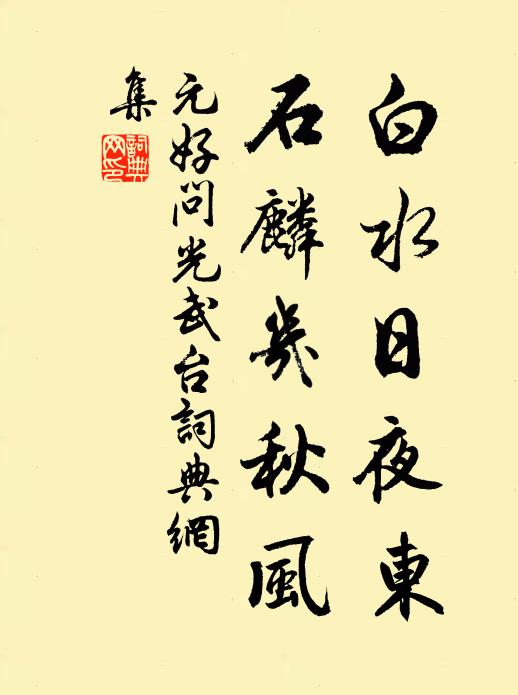 白水日夜東
石麟幾秋風
元好問光武台詞典網
集
詞典
网印